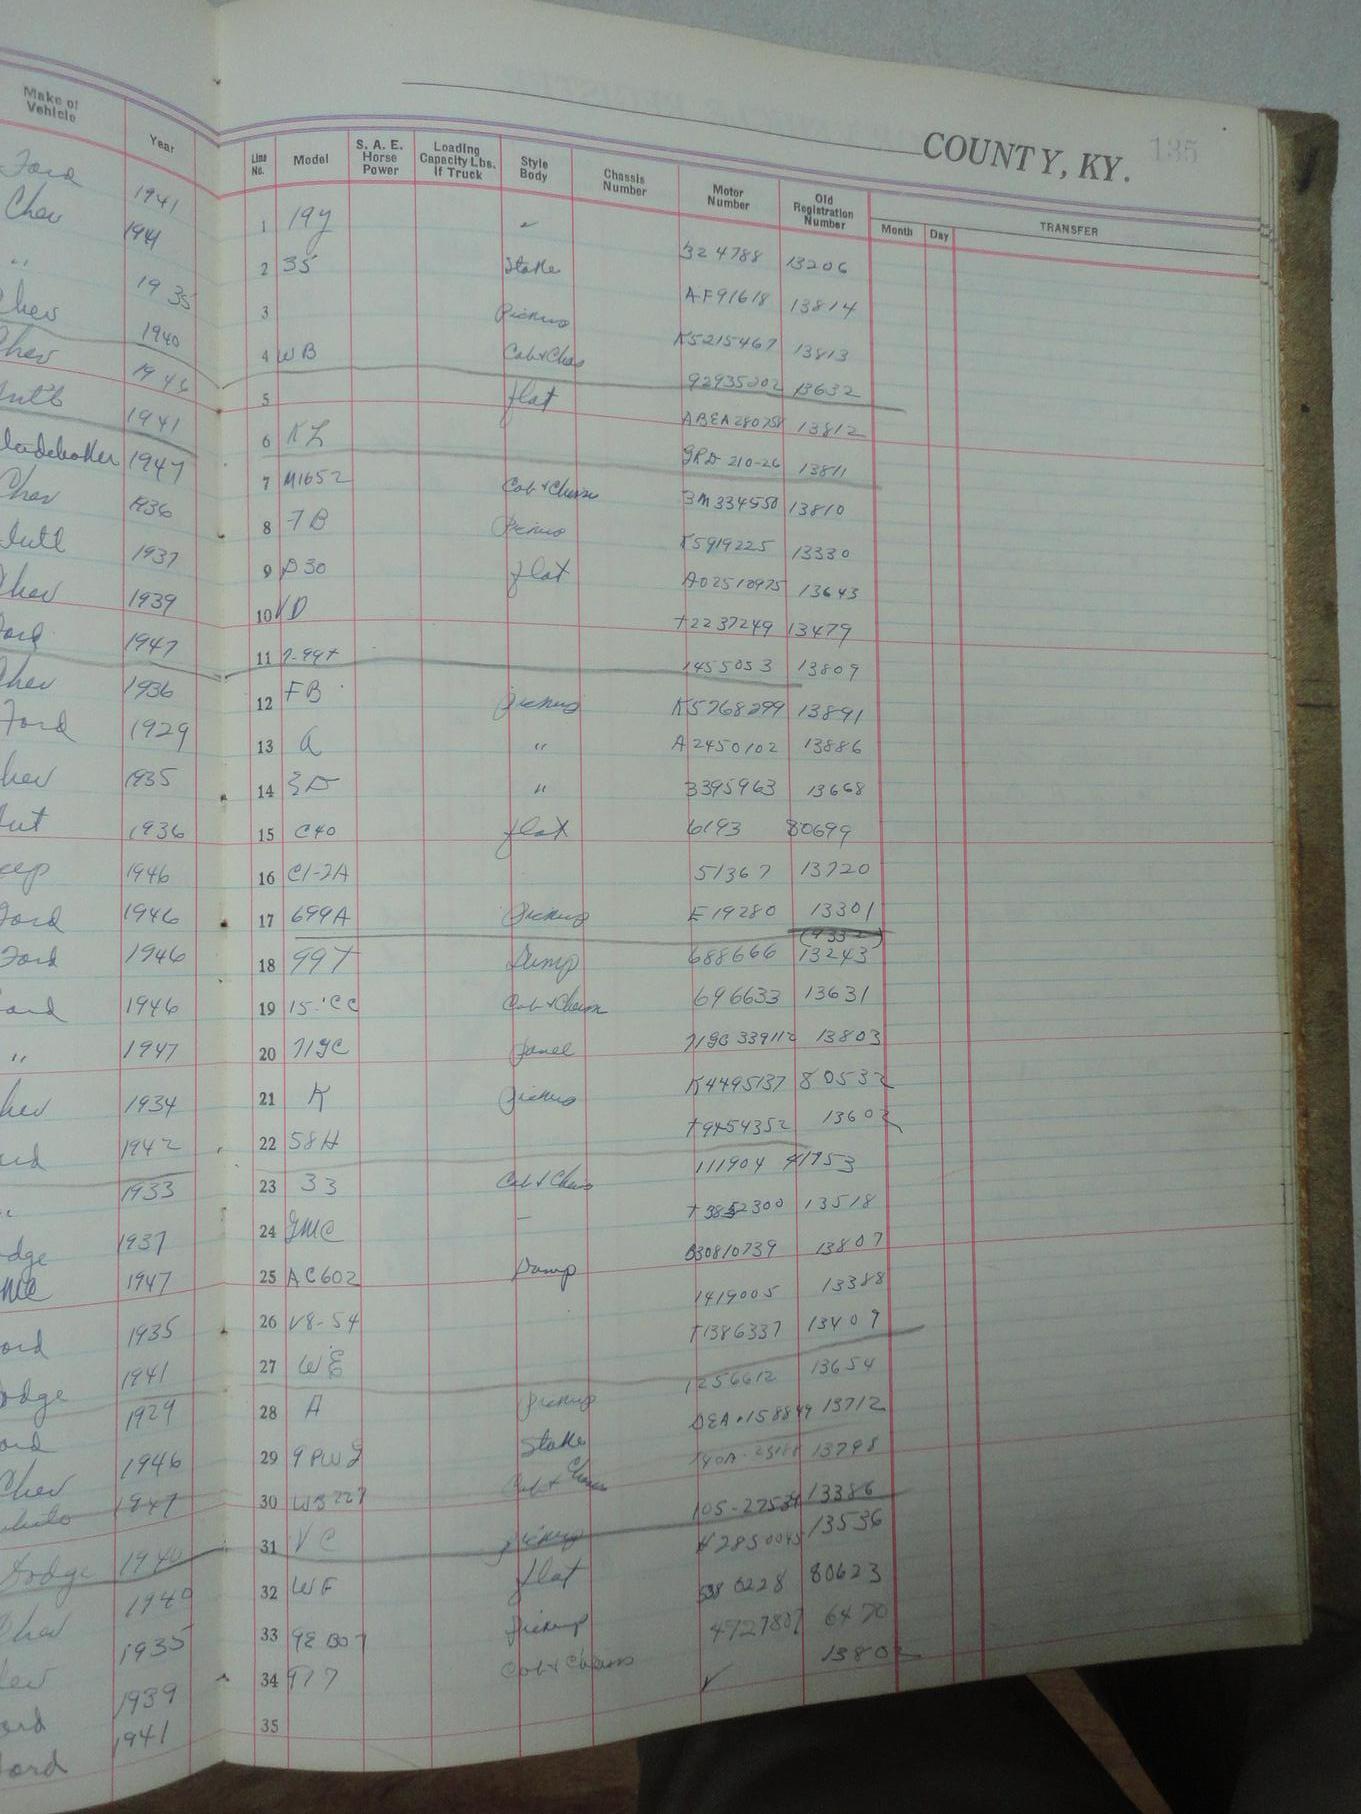 COUNTY, KY. 135
Make of Vehicle Year Line No. Model S. A. E. Horse Power Loading Capacity Lbs. If Truck Style Body Chassis Number Motor Number Old Registration Number Month Day TRANSFER
Ford 1941 1 19y
Chev 1941 2 35 Stake 324788 13206
" 1935 3 Pickup AF91618 13814
Chev 1940 4 WB Cab+Chas K5215467 13813
Chev 1946 5 flat 92935202 13632
1941 6 KL ABEA280758 13812
Studebaker 1947 7 M1652 Cab+Chassis GRD 210-26 13811
Chev 1936 8 7B Pickup 3M334550 13810
Intl 1937 9 D30 flat K5919225 13330
Chev 1939 10 VD A02510975 13643
Ford 1947 11 7-99T T2237249 13479
Chev 1936 12 FB Pickup 1455053 13809
Ford 1929 13 A " K5768299 13891
Chev 1935 14 3D " A2450102 13886
Int 1936 15 C40 flat 3395963 13668
Jeep 1946 16 C1-2A 6193 80699
Ford 1946 17 699A Pickup 51367 13720
Ford 1946 18 99T Dump E19280 13301
(9332)
Ford 1946 19 15-CC Cab+Chassis 688666 13243
" 1947 20 71GC Panel 696633 13631
Chev 1934 21 K Pickup 71GC 339112 13803
Ford 1942 22 58H K4495137 80532
" 1933 23 33 Cab+Chass T9454352 13602
Dodge 1937 24 GMC - 111904 41753
GMC 1947 25 AC602 Dump T3852300 13518
Ford 1935 26 V8-54 B30810739 13807
Dodge 1941 27 WE 1419005 13388
Ford 1929 28 A Pickup T1386337 13409
Chev 1946 29 9PWJ Stake 1256612 13654
1947 30 WB227 Cab+Chass DEA-158849 13712
Dodge 1940 31 VC Pickup 13798
Chev 1940 32 WF flat 105-2753 13386
Chev 1935 33 9EB07 Pickup 13536
Ford 1939 34 917 Cab+Chassis 0228 80623
Ford 1941 35 4727807 6470
13802